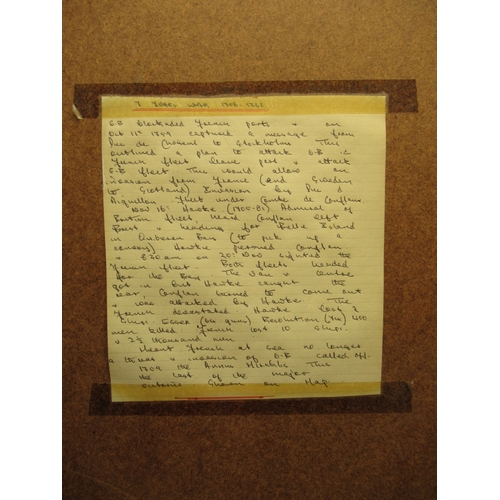 7 Years War 1756-1763
G.B blockaded French ports & on
Oct 11th 1759 captured a message from
Duc de Choiseul to Stockholm This
outlined a plan to attack G.B i.e
French fleet leave port & attack
G.B fleet This would allow an
invasion from France (and Sweden
to Scotland) Invasion by Duc d
Aiguillon Fleet under Comte de Conflans
Nov 16th Hawke (1705-81) Admiral of
British fleet heard Conflans left
Brest & heading for Belle Island
in Quiberon Bay (to pick up a
convoy) Hawke pursued Conflans
& 8.30 am on 20th Nov sighted the
French fleet Both fleets headed
for the Bay The Van & Centre
got in but Hawke caught the
rear, Conflans turned to come out
& was attacked by Hawke The
French devastated Hawke lost 2
ships Essex (64 guns) Resolution (74) 400
men killed French lost 10 ships
& 2½ thousand men
Meant French at sea no longer
a threat & invasion of G.B called off
1759 the Annus Mirabilis This
the last of the major
on Map